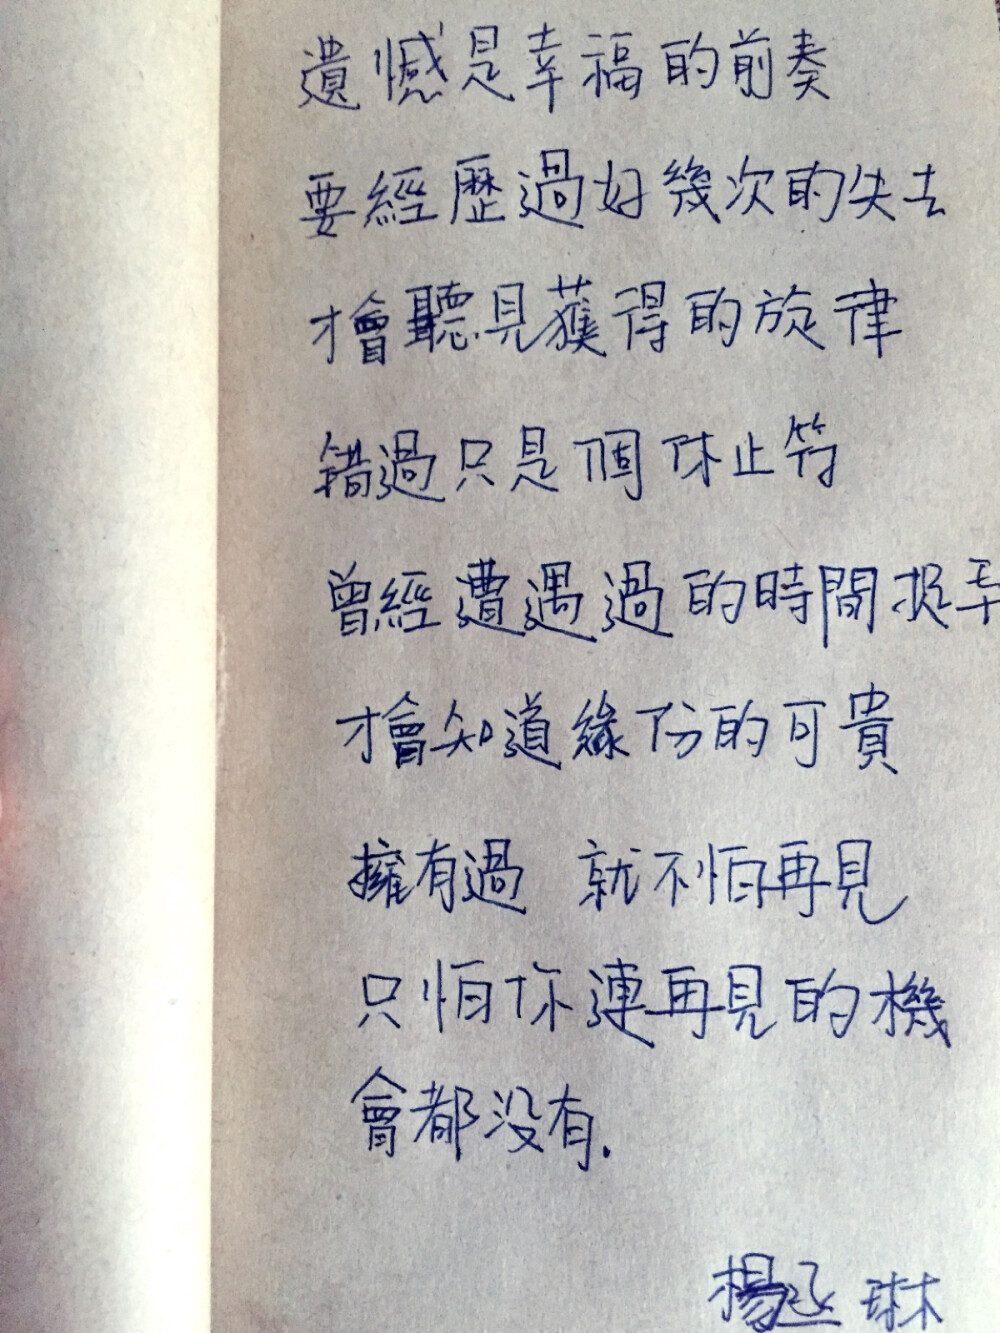 遺憾是幸福的前奏
要經歷過好幾次的失去
才會聽見獲得的旋律
錯過只是個休止符
曾經遭遇過的時間捉弄
才會知道緣份的可貴
擁有過 就不怕再見
只怕你連再見的機
會都没有.
楊丞琳